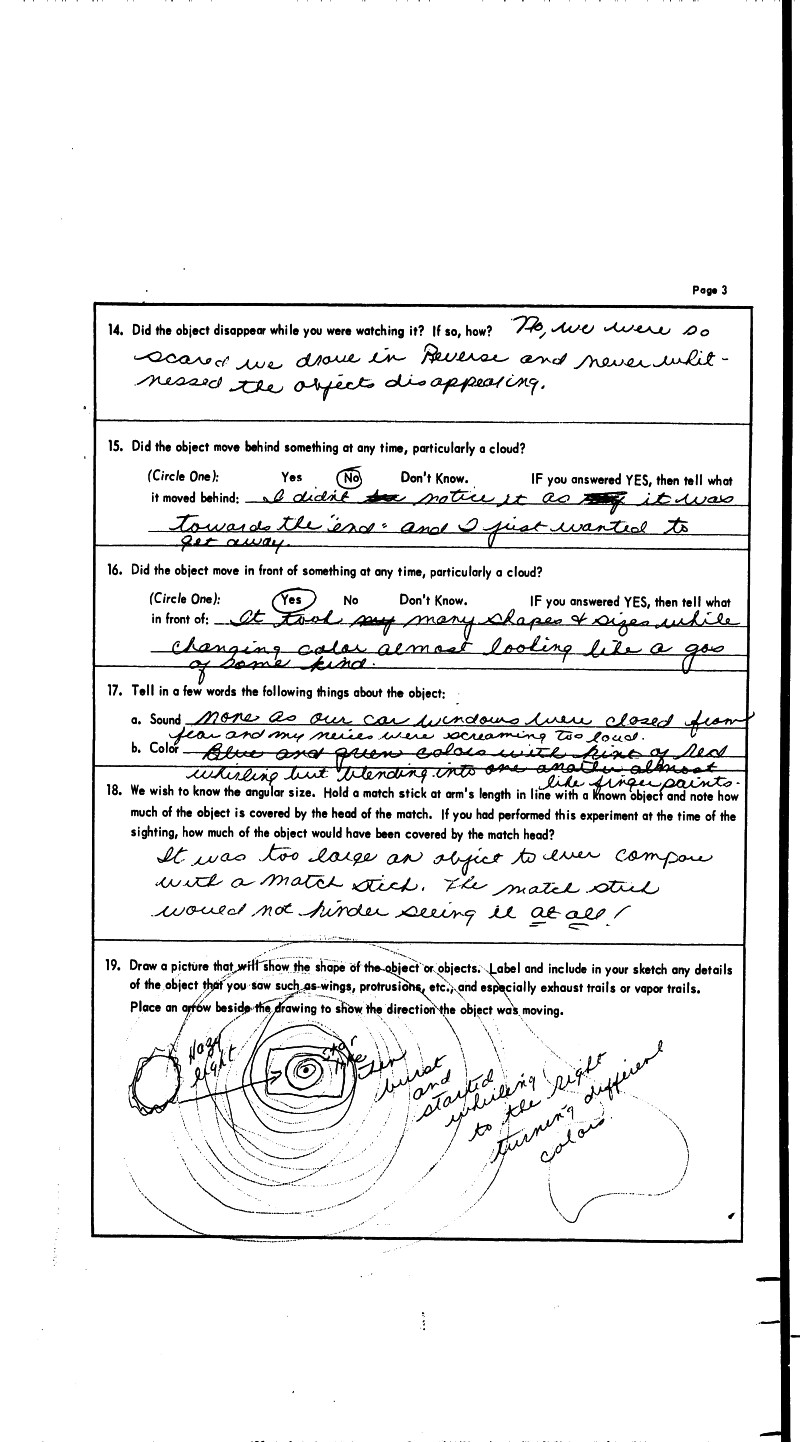 Page 3
14. Did the object disappear while you were watching it? If so, how? No, we were so
scared we drove in Reverse and never whit-
nessed the objects disappearing.
15. Did the object move behind something at any time, particularly a cloud?
(Circle One): Yes No Don't Know. IF you answered YES, then tell what
it moved behind: I didnt notice it as it was
towards the "end" and I just wanted to
get away.
16. Did the object move in front of something at any time, particularly a cloud?
(Circle One): Yes No Don't Know. IF you answered YES, then tell what
in front of: It took many shapes & sizes while
changing color almost looking like a gas
of some kind.
17. Tell in a few words the following things about the object:
a. Sound None as our car windows were closed from
fear and my neices were screaming too loud.
b. Color Blue and green colors with hint of red
whirling but blending into one another almost
like finger paints.
18. We wish to know the angular size. Hold a match stick at arm's length in line with a known object and note how
much of the object is covered by the head of the match. If you had performed this experiment at the time of the
sighting, how much of the object would have been covered by the match head?
It was too large an object to ever compare
with a match stick. The match stick
would not hinder seeing it at all!
19. Draw a picture that will show the shape of the object or objects. Label and include in your sketch any details
of the object that you saw such as wings, protrusions, etc., and especially exhaust trails or vapor trails.
Place an arrow beside the drawing to show the direction the object was moving.
Hazy
light
star
like
then
burst
and
started
whirling
to the right
turning different
colors